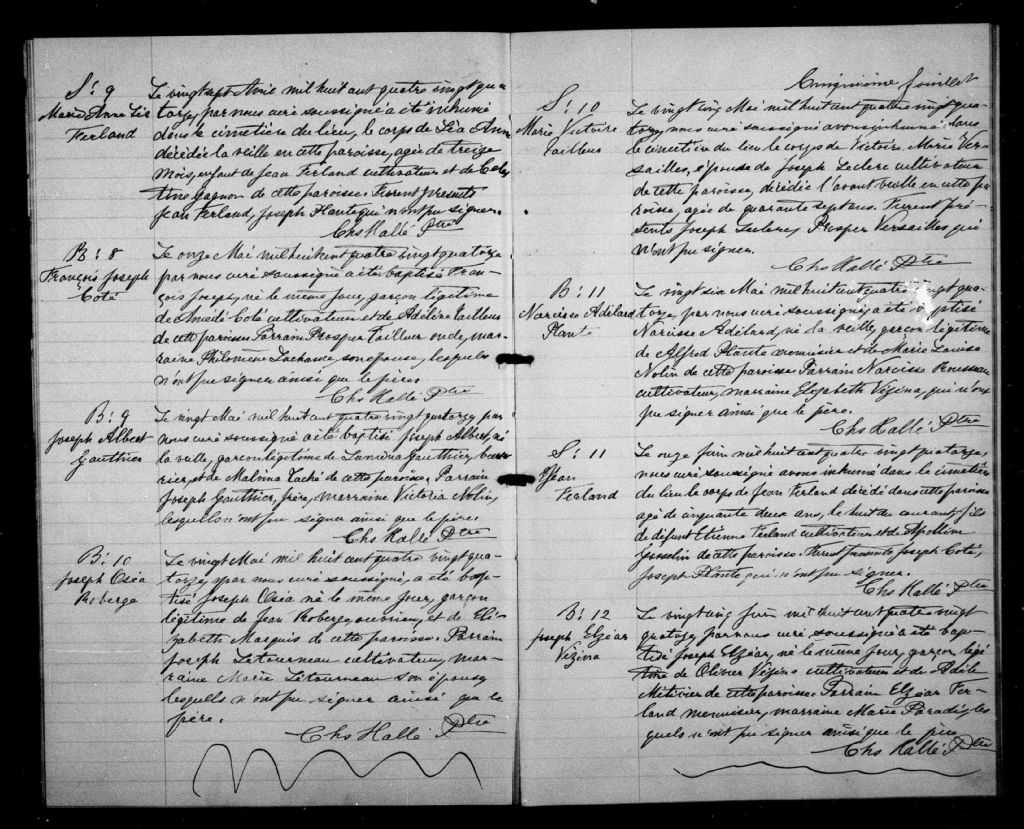 S: 9
Marie Anne Léa
Ferland
Le vingt sept Avril mil huit cent quatre vingt qua
torze, par nous curé soussigné a été inhumé
dans le cimetière du lieu, le corps de Léa Anna
décédée la veille en cette paroisse, agée de treize
mois, enfant de Jean Ferland cultivateur et de Céles
tine gagnon de cette paroisse. Furent présents
Jean Ferland, Joseph Plante qui n'ont pu signer.
Chs Hallé Ptre
B: 8
François Joseph
Coté
Le onze Mai mil huit cent quatre vingt quatorze
par nous curé soussigné a été baptisé Fran-
çois Joseph, né le même jour, garçon légitime
de Amédé Coté cultivateur et de Adélère Tailleur
de cette paroisse Parrain Prosper Tailleur oncle, mar-
raine Philomène Lachance son épouse, lesquels
n'ont pu signer ainsi que le père.
Chs Hallé Ptre
B: 9
Joseph Albert
Gauthier
Le vingt Mai mil huit cent quatre vingt quatorze par
nous curé soussigné a été baptisé Joseph Albert, né
la veille, garçon légitime de Gauthier,
et de Malvina Taché de cette paroisse. Parrain
Joseph Gauthier, frère, marraine Victoria Nolin,
lesquels n'ont pu signer ainsi que le père.
Chs Hallé Ptre
B: 10
Joseph Oséa
Roberge
Le vingt Mai mil huit cent quatre vingt qua-
torze, par nous curé soussigné, a été bap-
tisé Joseph Oséa né le même jour, garçon
légitime de Jean Roberge, ouvrier, et de Eli-
zabeth Marquis de cette paroisse. Parrain
Joseph Létourneau cultivateur, mar-
raine Marie Létourneau son épouse
lesquels n'ont pu signer ainsi que le
père.
Chs Hallé Ptre
Cinquième feuillet
S: 10
Marie Victoire
Tailleur
Le vingt cinq Mai mil huit cent quatre vingt qua-
torze, nous curé soussigné avons inhumé dans
le cimetière du lieu le corps de Victoire Marie Ver-
sailles, épouse de Joseph Leclerc cultivateur
de cette paroisse, décédée l'avant veille en cette pa
roisse, agée de quarante sept ans. Furent pré-
sents Joseph Leclerc, Prosper Versailles qui
n'ont pu signer.
Chs Hallé Ptre
B: 11
Narcisse Adélard
Plante
Le vingt six Mai mil huit cent quatre vingt qua-
torze, par nous curé soussigné, a été baptisé
Narcisse Adélard, né la veille, garçon légitime
de Alfred Plante menuisier et de Marie Louise
Nolin de cette paroisse Parrain Narcisse Rousseau
cultivateur, marraine Elizabeth Vézina, qui n'ont
pu signer ainsi que le père.
Chs Hallé Ptre
S: 11
Jean
Ferland
Le onze Juin mil huit cent quatre vingt quatorze,
nous curé soussigné avons inhumé dans le cimetière
du lieu le corps de Jean Ferland décédé dans cette paroisse
agé de cinquante deux ans, le huit du courant, fils
de défunt Etienne Ferland cultivateur et de Apolline
Gosselin de cette paroisse. Furent présents Joseph Coté,
Joseph Plante qui n'ont pu signer.
Chs Hallé Ptre
B: 12
Joseph Elzéar
Vézina
Le vingt cinq Juin mil huit cent quatre vingt
quatorze, par nous curé soussigné a été bap-
tisé Joseph Elzéar, né le même jour, garçon légi
time de Olivier Vézina cultivateur et de Adèle
Mercier de cette paroisse. Parrain Elzéar Fer-
land menuisier, marraine Marie Paradis, les
quels n'ont pu signer ainsi que le père
Chs Hallé Ptre